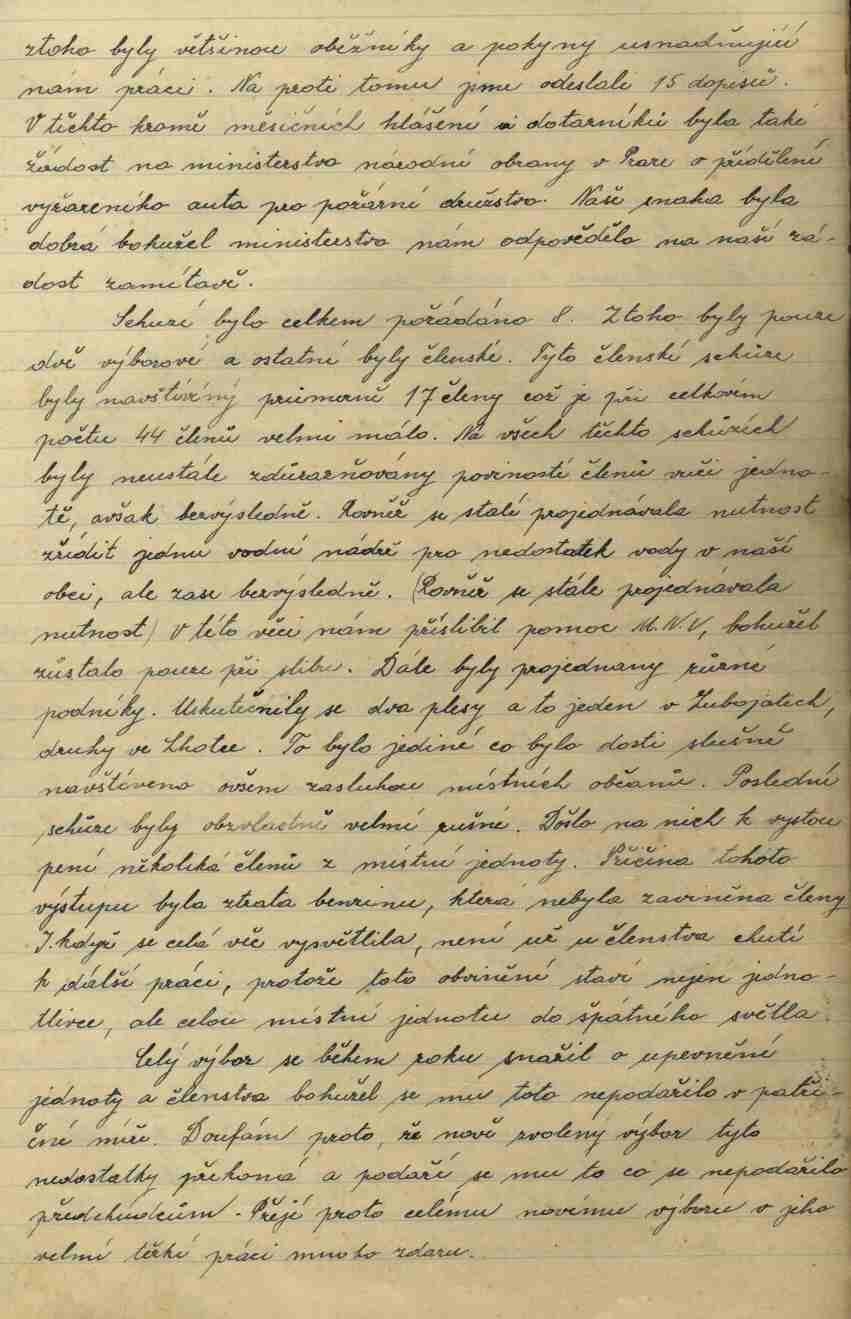 ztoho byly většinou oběžníky a pokyny usnadňující
nám práci. Na proti tomu jsme odeslali 15 dopisů.
V těchto kromě měsíčních hlášení a dotazníků byla také
žádost na ministerstvo národní obrany v Praze o přidělení
vyřazeného auta pro požární družstvo. Naše snaha byla
dobrá bohužel ministerstvo nám odpovědělo na naší žá-
dost zamítavě.
Schuzí bylo celkem pořádáno 8. Ztoho byly pouze
dvě výborové a ostatní byly členské. Tyto členské schůze
byly navštíveny průmerně 17 členy což je při celkovém
počtu 44 členů velmi málo. Na všech těchto schůzích
byly neustále zdůrazňovány povinosti členů vuči jedno-
tě, avšak bezvýsledně. Rovněž se stalé projednávala nutnost
zřídit jednu vodní nádrž pro nedostatek vody v naší
obci, ale zase bezvýsledně. (Rovněž se stále projednávala
nutnost) V této věci nám přislíbil pomoc M.N.V, bohužel
zůstalo pouze při slibu. Dále byly projednany různé
podniky. Uskutečnily se dva plesy a to jeden v Lubojatech,
druhy ve Lhotce. To bylo jediné co bylo dosti slušně
navštíveno ovšem zasluhou místních občanů. Poslední
schůze byly obzvlastně velmi rušné. Došlo na nich k vystou
pení několiká členů z místní jednoty. Příčina tohoto
výstupu byla ztrata benzinu, která nebyla zaviněna členy
I když se celá věc vysvětlila, není už u členstva chuti
k další práci, protože toto obvinění staví nejen jedno-
tlivce, ale celou místní jednotu do špátného světla.
Celý výbor se během roku snažil o upevnění
jednoty a členstva bohužel se mu toto nepodařilo v patři-
čné míře. Doufám proto, že nově zvolený výbor tyto
nedostatky překoná a podaří se mu to co se nepodařilo
předchůdcům. Přejí proto celému novému výboru v jeho
velmi těžké práci mnoho zdaru.